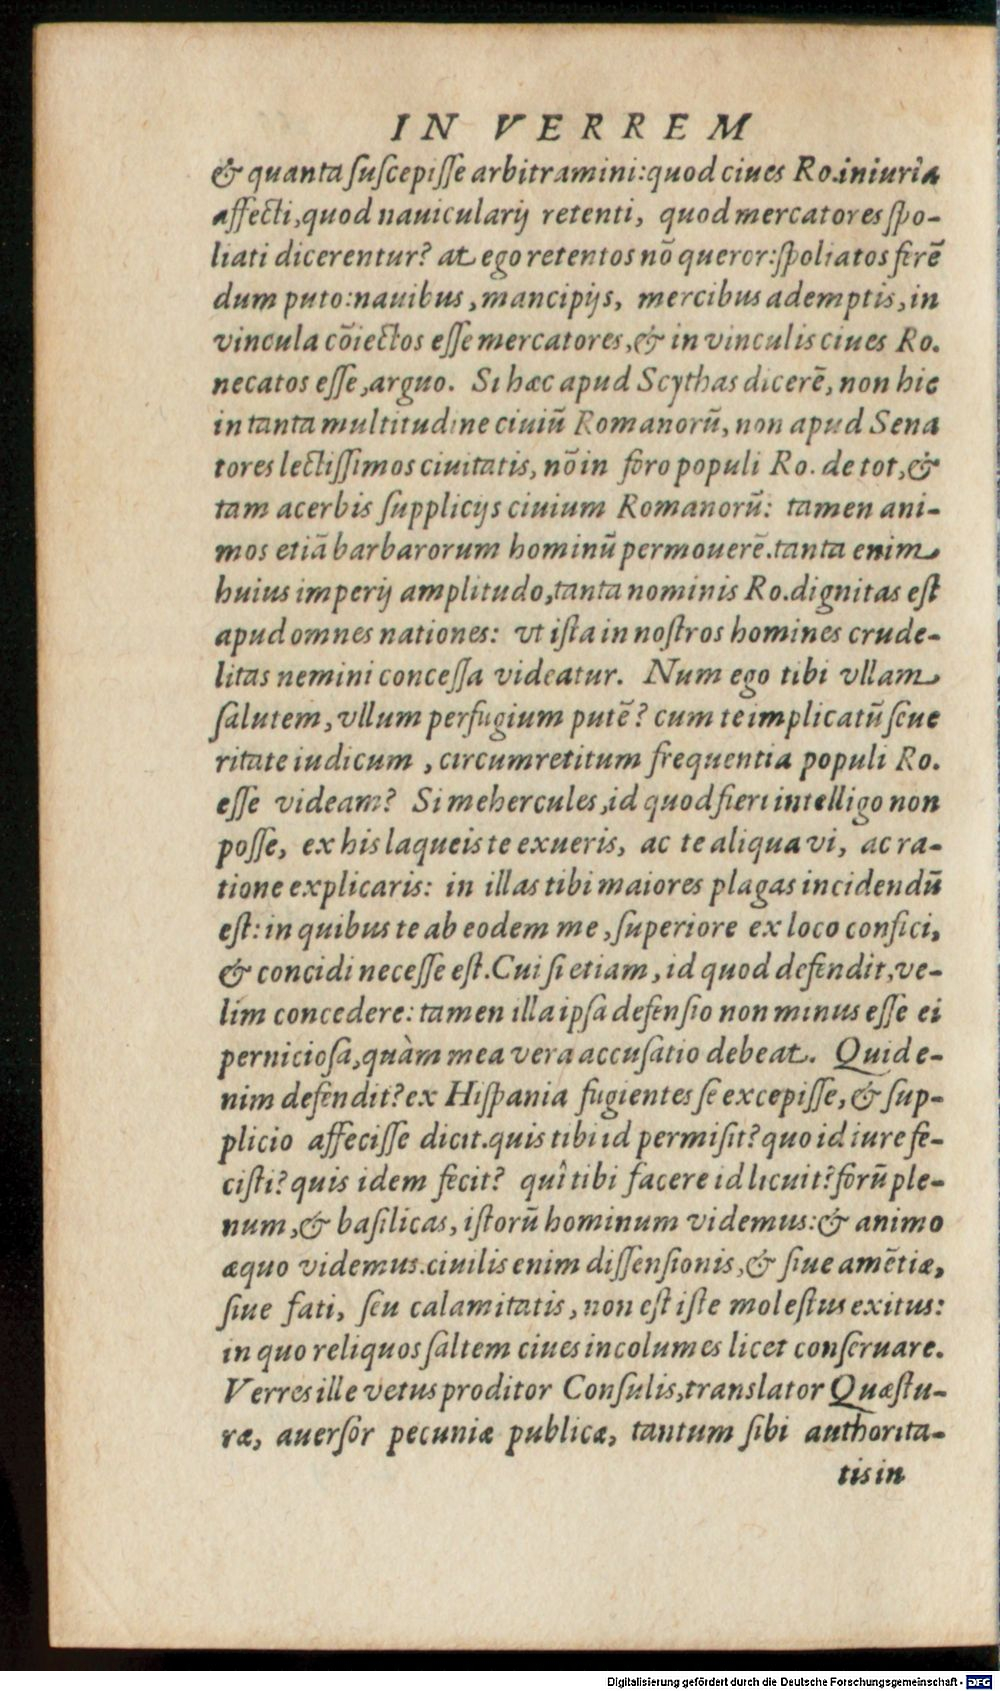 IN VERREM
& quanta ſuſcepiſſe arbitramini: quod ciues Ro. iniuria
affecti, quod nauicularij retenti, quod mercatores ſpo-
liati dicerentur? at ego retentos nō queror: ſpoliatos ferē
dum puto: nauibus, mancipijs, mercibus ademptis, in
vincula cōiectos eſſe mercatores, & in vinculis ciues Ro.
necatos eſſe, arguo. Si hæc apud Scythas dicerē, non hic
in tanta multitudine ciuiū Romanorū, non apud Sena
tores lectiſſimos ciuitatis, nō in foro populi Ro. de tot, &
tam acerbis ſupplicijs ciuium Romanorū: tamen ani-
mos etiā barbarorum hominū permouerē. tanta enim
huius imperij amplitudo, tanta nominis Ro. dignitas eſt
apud omnes nationes: vt iſta in noſtros homines crude-
litas nemini conceſſa videatur. Num ego tibi vllam
ſalutem, vllum perfugium putē? cum te implicatū ſeue
ritate iudicum, circumretitum frequentia populi Ro.
eſſe videam? Si mehercules, id quod fieri intelligo non
poſſe, ex his laqueis te exueris, ac te aliqua vi, ac ra-
tione explicaris: in illas tibi maiores plagas incidendū
eſt: in quibus te ab eodem me, ſuperiore ex loco confici,
& concidi neceſſe eſt. Cui ſi etiam, id quod defendit, ve-
lim concedere: tamen illa ipſa defenſio non minus eſſe ei
pernicioſa, quàm mea vera accuſatio debeat. Quid e-
nim defendit? ex Hiſpania fugientes ſe excepiſſe, & ſup-
plicio affeciſſe dicit. quis tibi id permiſit? quo id iure fe-
ciſti? quis idem fecit? quî tibi facere id licuit? forū ple-
num, & baſilicas, iſtorū hominum videmus: & animo
æquo videmus. ciuilis enim diſſenſionis, & ſiue amētiæ,
ſiue fati, ſeu calamitatis, non eſt iſte moleſtus exitus:
in quo reliquos ſaltem ciues incolumes licet conſeruare.
Verres ille vetus proditor Conſulis, translator Quæſtu-
ræ, auerſor pecuniæ publicæ, tantum ſibi authorita-
tis in
Digitalisierung gefördert durch die Deutsche Forschungsgemeinschaft - DFG